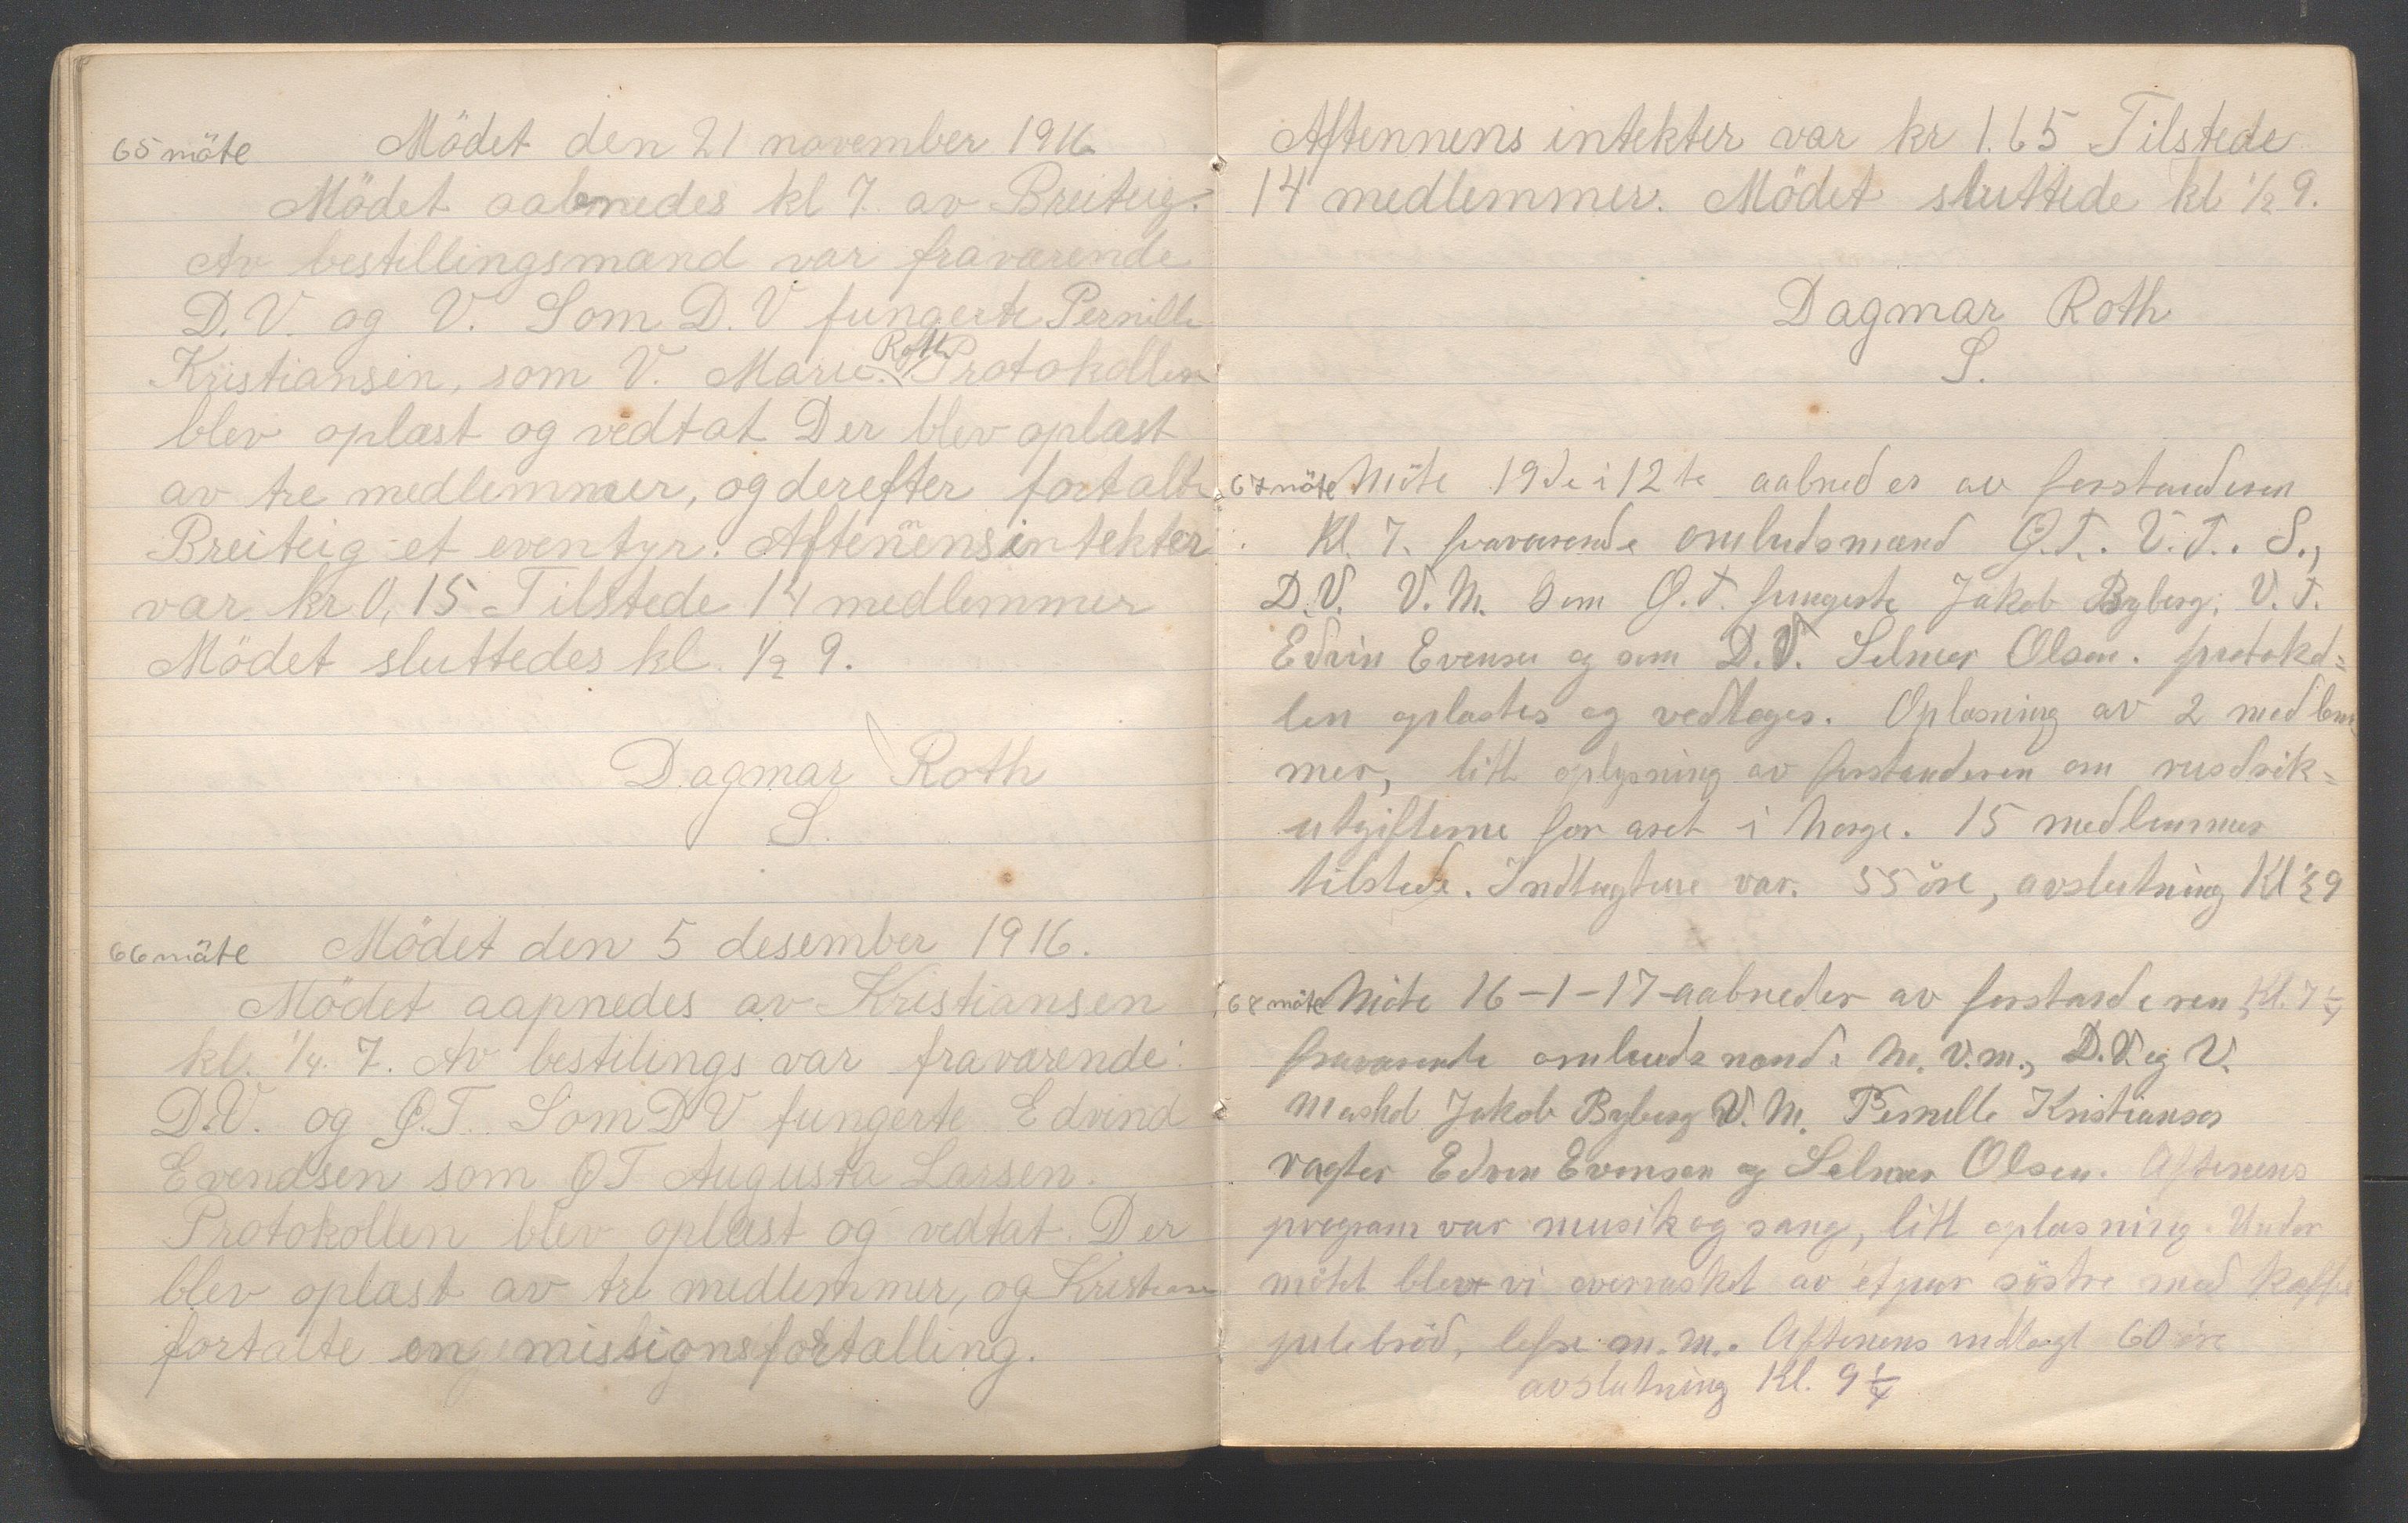 65 möte Mödet den 21 november 1916
Mödet aabnedes kl 7. av Breiteig.
Av bestillingsmænd var fraværende
D.V. og V. Som D.V fungerte Pernille
Kristiansen, som V. Marie Roth. Protokollen
blev oplæst og vedtat Der blev oplæst
av tre medlemmer, og derefter fortalte
Breiteig et eventyr. Aftenens intekter
var kr 0,15 Tilstede 14 medlemmer
Mödet sluttedes kl. ½ 9.
Dagmar Roth
S.
66 möte Mödet den 5 desember 1916.
Mödet aapnedes av Kristiansen
kl. ¼ 7. Av bestilings var fraværende:
D.V. og G.T. Som D V fungerte Edvind
Evendsen som G T Augusta Larsen.
Protokollen blev oplæst og vedtat. Der
blev oplæst av tre medlemmer, og Kristiansen
fortalte en missionsfortælling.
Aftennens intekter var kr 1.65 Tilstede
14 medlemmer. Mödet sluttede kl ½ 9.
Dagmar Roth
S.
67 möte Möte 19de i 12te aabnedes av forstanderen
Kl. 7. fraværende ombudsmænd G.T. V.T. S.,
D.V. V.M. Som G.T. fungerte Jakob Byberg, V.T.
Edvin Evensen og som D.V. Selmer Olsen. protokol=
len oplæstes og vedtoges. Oplæsning av 2 medlem=
mer, litt oplysning av forstanderen om rusdrik=
utgifterne for aret i Norge. 15 medlemmer
tilstede. Indtægterne var. 55 öre, avslutning Kl ½ 9
68 möte Möte 16-1-17 aabnedes av forstanderen, Kl. 7 ¼
fraværende ombudsmænd: M. V.M., D.V. og V.
Marskal Jakob Byberg V.M. Pernille Kristiansen
vagter Edvin Evensen og Selmer Olsen. Aftenens
program var musik og sang, litt oplæsning. Under
mötet blev vi overrasket av et par söstre med kaffe
julebröd, lefse m.m. Aftenens indtægt 60 öre
avslutning Kl. 9 ¼